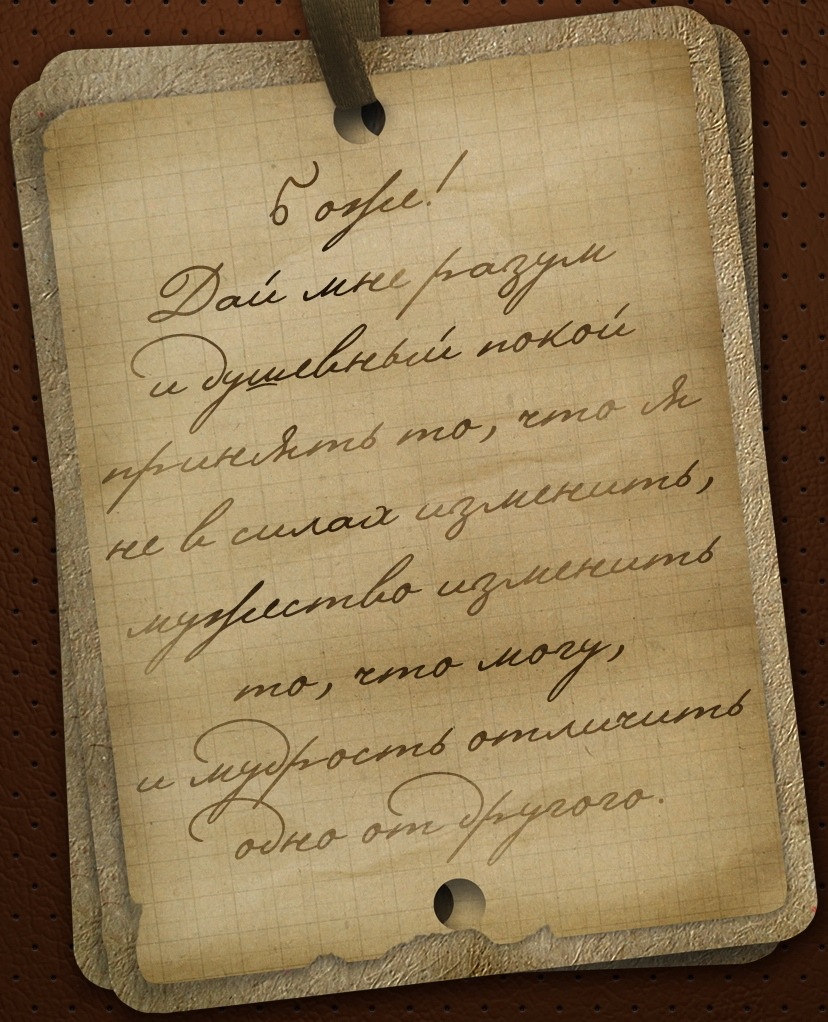 Боже!
Дай мне разум
и душевный покой
принять то, что я
не в силах изменить,
мужество изменить
то, что могу,
и мудрость отличить
одно от другого.